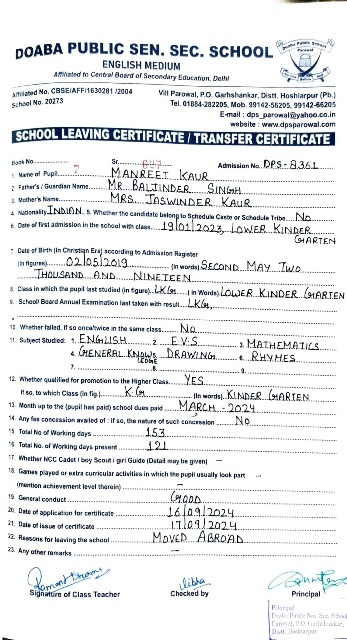 DOABA PUBLIC SEN. SEC. SCHOOL
ENGLISH MEDIUM
Affiliated to Central Board of Secondary Education, Delhi
Affiliated No. CBSE/AFF/1630281 /2004
School No. 20273
Vill Parowal, P.O. Garhshankar, Distt. Hoshiarpur (Pb.)
Tel. 01884-282205, Mob. 99142-56205, 99142-66205
E-mail : dps_parowal@yahoo.co.in
website : www.dpsparowal.com
SCHOOL LEAVING CERTIFICATE / TRANSFER CERTIFICATE
Book No. 7 Sr. 627 Admission No. DPS-8361
1. Name of Pupil MANREET KAUR
2. Father's / Guardian Name MR. BALJINDER SINGH
3. Mother's Name MRS. JASWINDER KAUR
4. Nationality INDIAN 5. Whether the candidate belong to Schedule Caste or Schedule Tribe No
6. Date of first admission in the school with class 19/01/2023, LOWER KINDER GARTEN
7. Date of Birth (In Christian Era) according to Admission Register
(In figures) 02/05/2019 (in words) SECOND MAY TWO
THOUSAND AND NINETEEN
8. Class in which the pupil last studied (in figure) LKG (in Words) LOWER KINDER GARTEN
9. School/ Board Annual Examination last taken with result LKG,
10. Whether failed, if so once/twice in the same class No
11. Subject Studied : 1. ENGLISH 2. E.V.S 3. MATHEMATICS
4. GENERAL KNOWLEDGE DRAWING 6. RHYMES
7. 8. 9.
12. Whether qualified for promotion to the Higher Class YES
If so, to which Class (in fig.) K.G (In words) KINDER GARTEN
13. Month up to the (pupil has paid) school dues paid MARCH-2024
14. Any fee concession availed of : if so, the nature of such concession No
15. Total No of Working days 153
16. Total No. of Working days present 121
17. Whether NCC Cadet / boy Scout / girl Guide (Detail may be given) –
18. Games played or extra curricular activities in which the pupil usually took part –
(mention achievement level therein) –
19. General conduct GOOD
20. Date of application for certificate 16/09/2024
21. Date of issue of certificate 17/09/2024
22. Reasons for leaving the school MOVED ABROAD
23. Any other remarks –
Signature of Class Teacher
Checked by
Principal
Principal
Doaba Public Sen. Sec. School
Parowal, P.O. Garhshankar,
Distt. Hoshiarpur